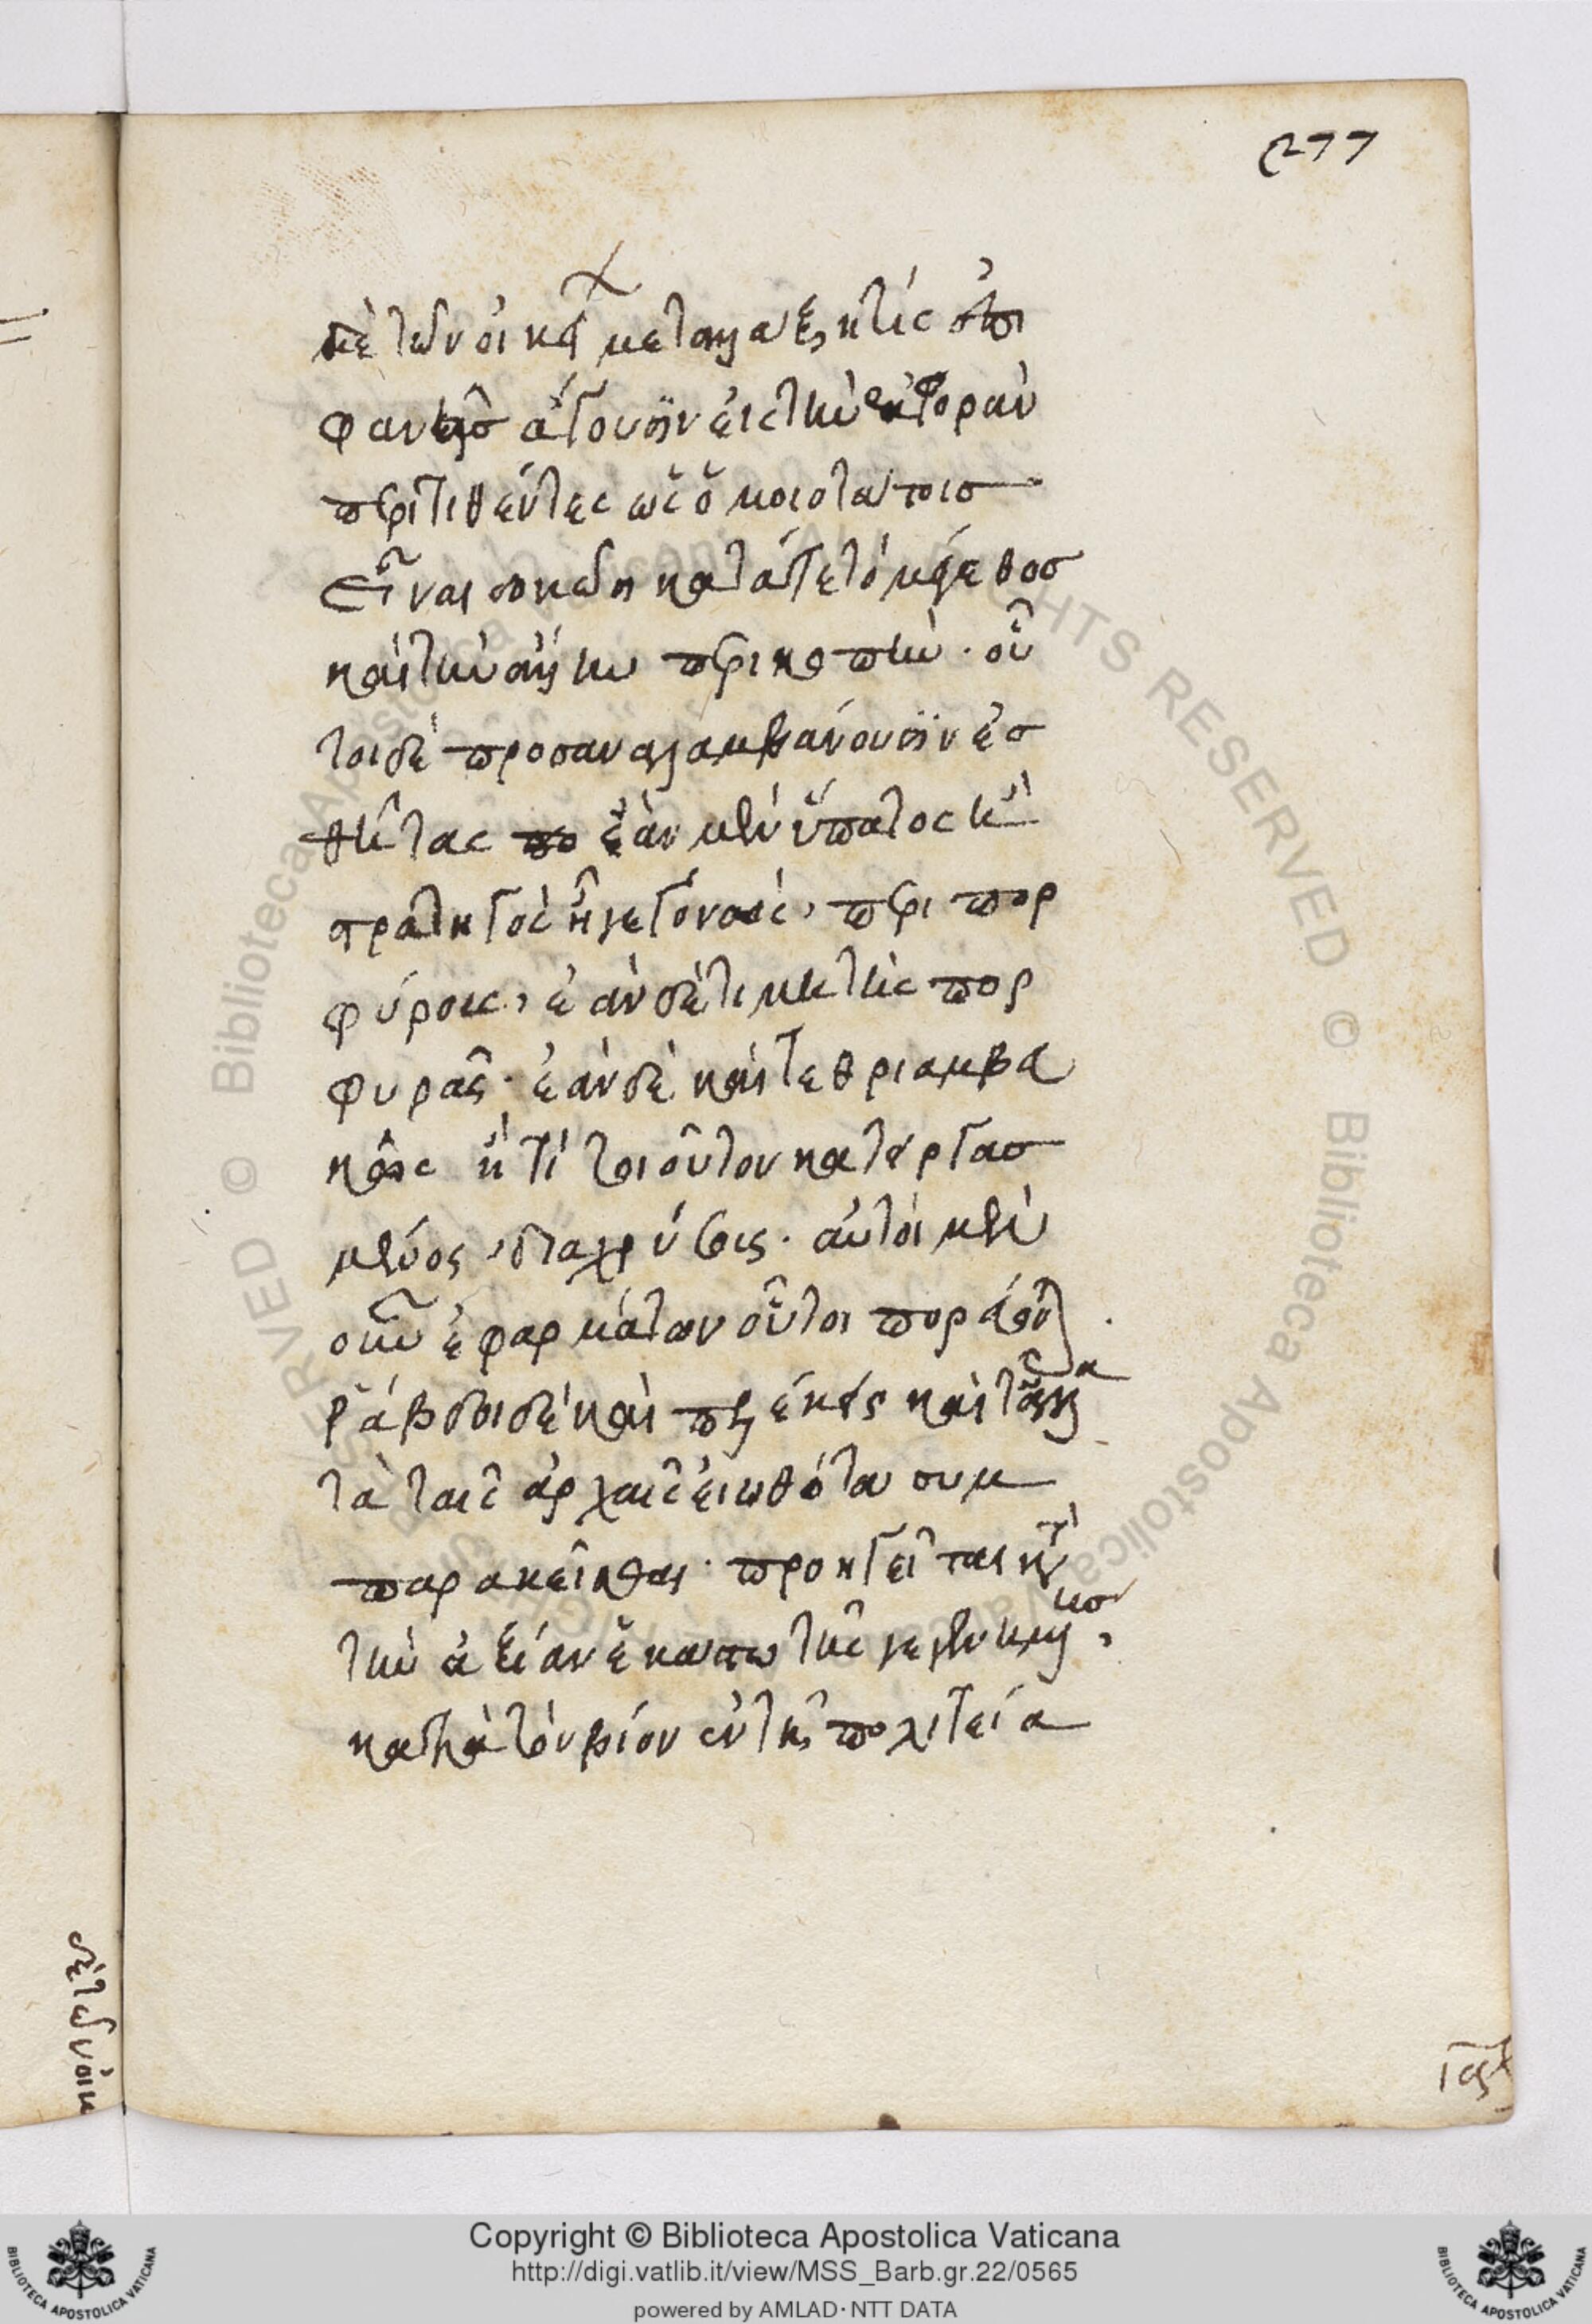 277
τὲ τῶν οἰκείων μεταλλάξῃ τίς ἐπι
φανὴς ἄγουσιν εἰς τὴν ἐκφορὰν
περιτιθέντες ὡς ὁμοιοτάτοις
εἶναι δοκῶσι κατά τε τὸ μέγεθος
καὶ τὴν ἄλλην περικοπήν. οὗ
τοι δὲ προσαναλαμβάνουσιν ἐσ
θῆτας ἐὰν μὲν ὕπατος ἢ
στρατηγὸς ἦ γεγονώς, περιπορ
φύρους, ἐὰν δὲ τιμητὴς πορ
φυρᾶς. ἐὰν δὲ καὶ τεθριαμβευ
κὼς ἤ τι τοιοῦτον κατειργασ
μένος, διαχρύσους. αὐτοὶ μὲν
οὖν ἐφ' ἁρμάτων οὗτοι πορεύονται.
ῥάβδοι δὲ καὶ πελέκεις καὶ τἄλλα
τὰ ταῖς ἀρχαῖς εἰωθότα συμ
παρακεῖσθαι. προηγεῖται κατὰ
τὴν ἀξίαν ἑκάστῳ τῆς γεγενημένης,
κατὰ τὸν βίον ἐν τῇ πολιτείᾳ
τὲ τῶν οἰκ
Copyright © Biblioteca Apostolica Vaticana
http://digi.vatlib.it/view/MSS_Barb.gr.22/0565
powered by AMLAD·NTT DATA